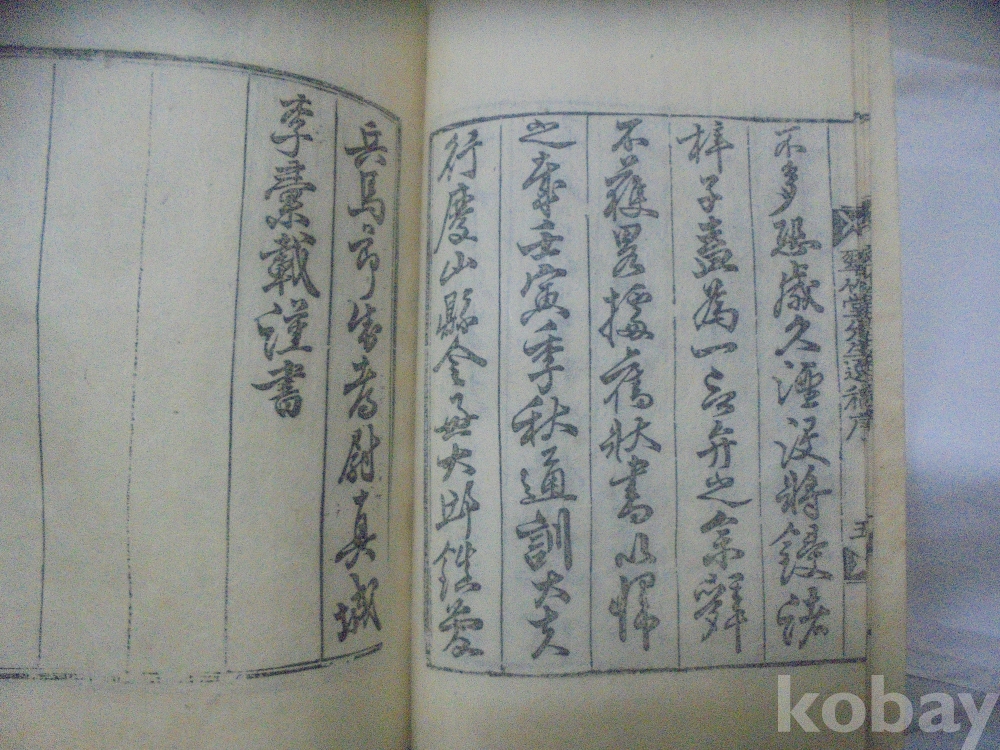 竹堂先生遺稿序
五
不多恐歲久湮沒將鋟諸
梓子盍為一言弁之余辭
不獲畧據舊狀書以歸
之壬寅季秋通訓大夫
行慶山縣令兼大邱鎮管
兵馬節制都尉真城
李彙載謹書
kobay